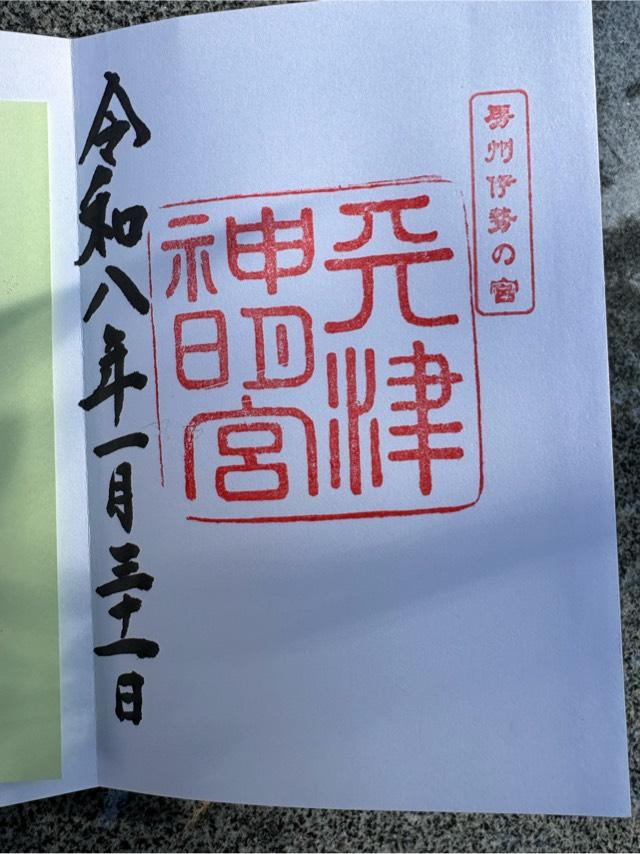 房州伊勢の宮
天津
神明宮
令和八年一月三十一日